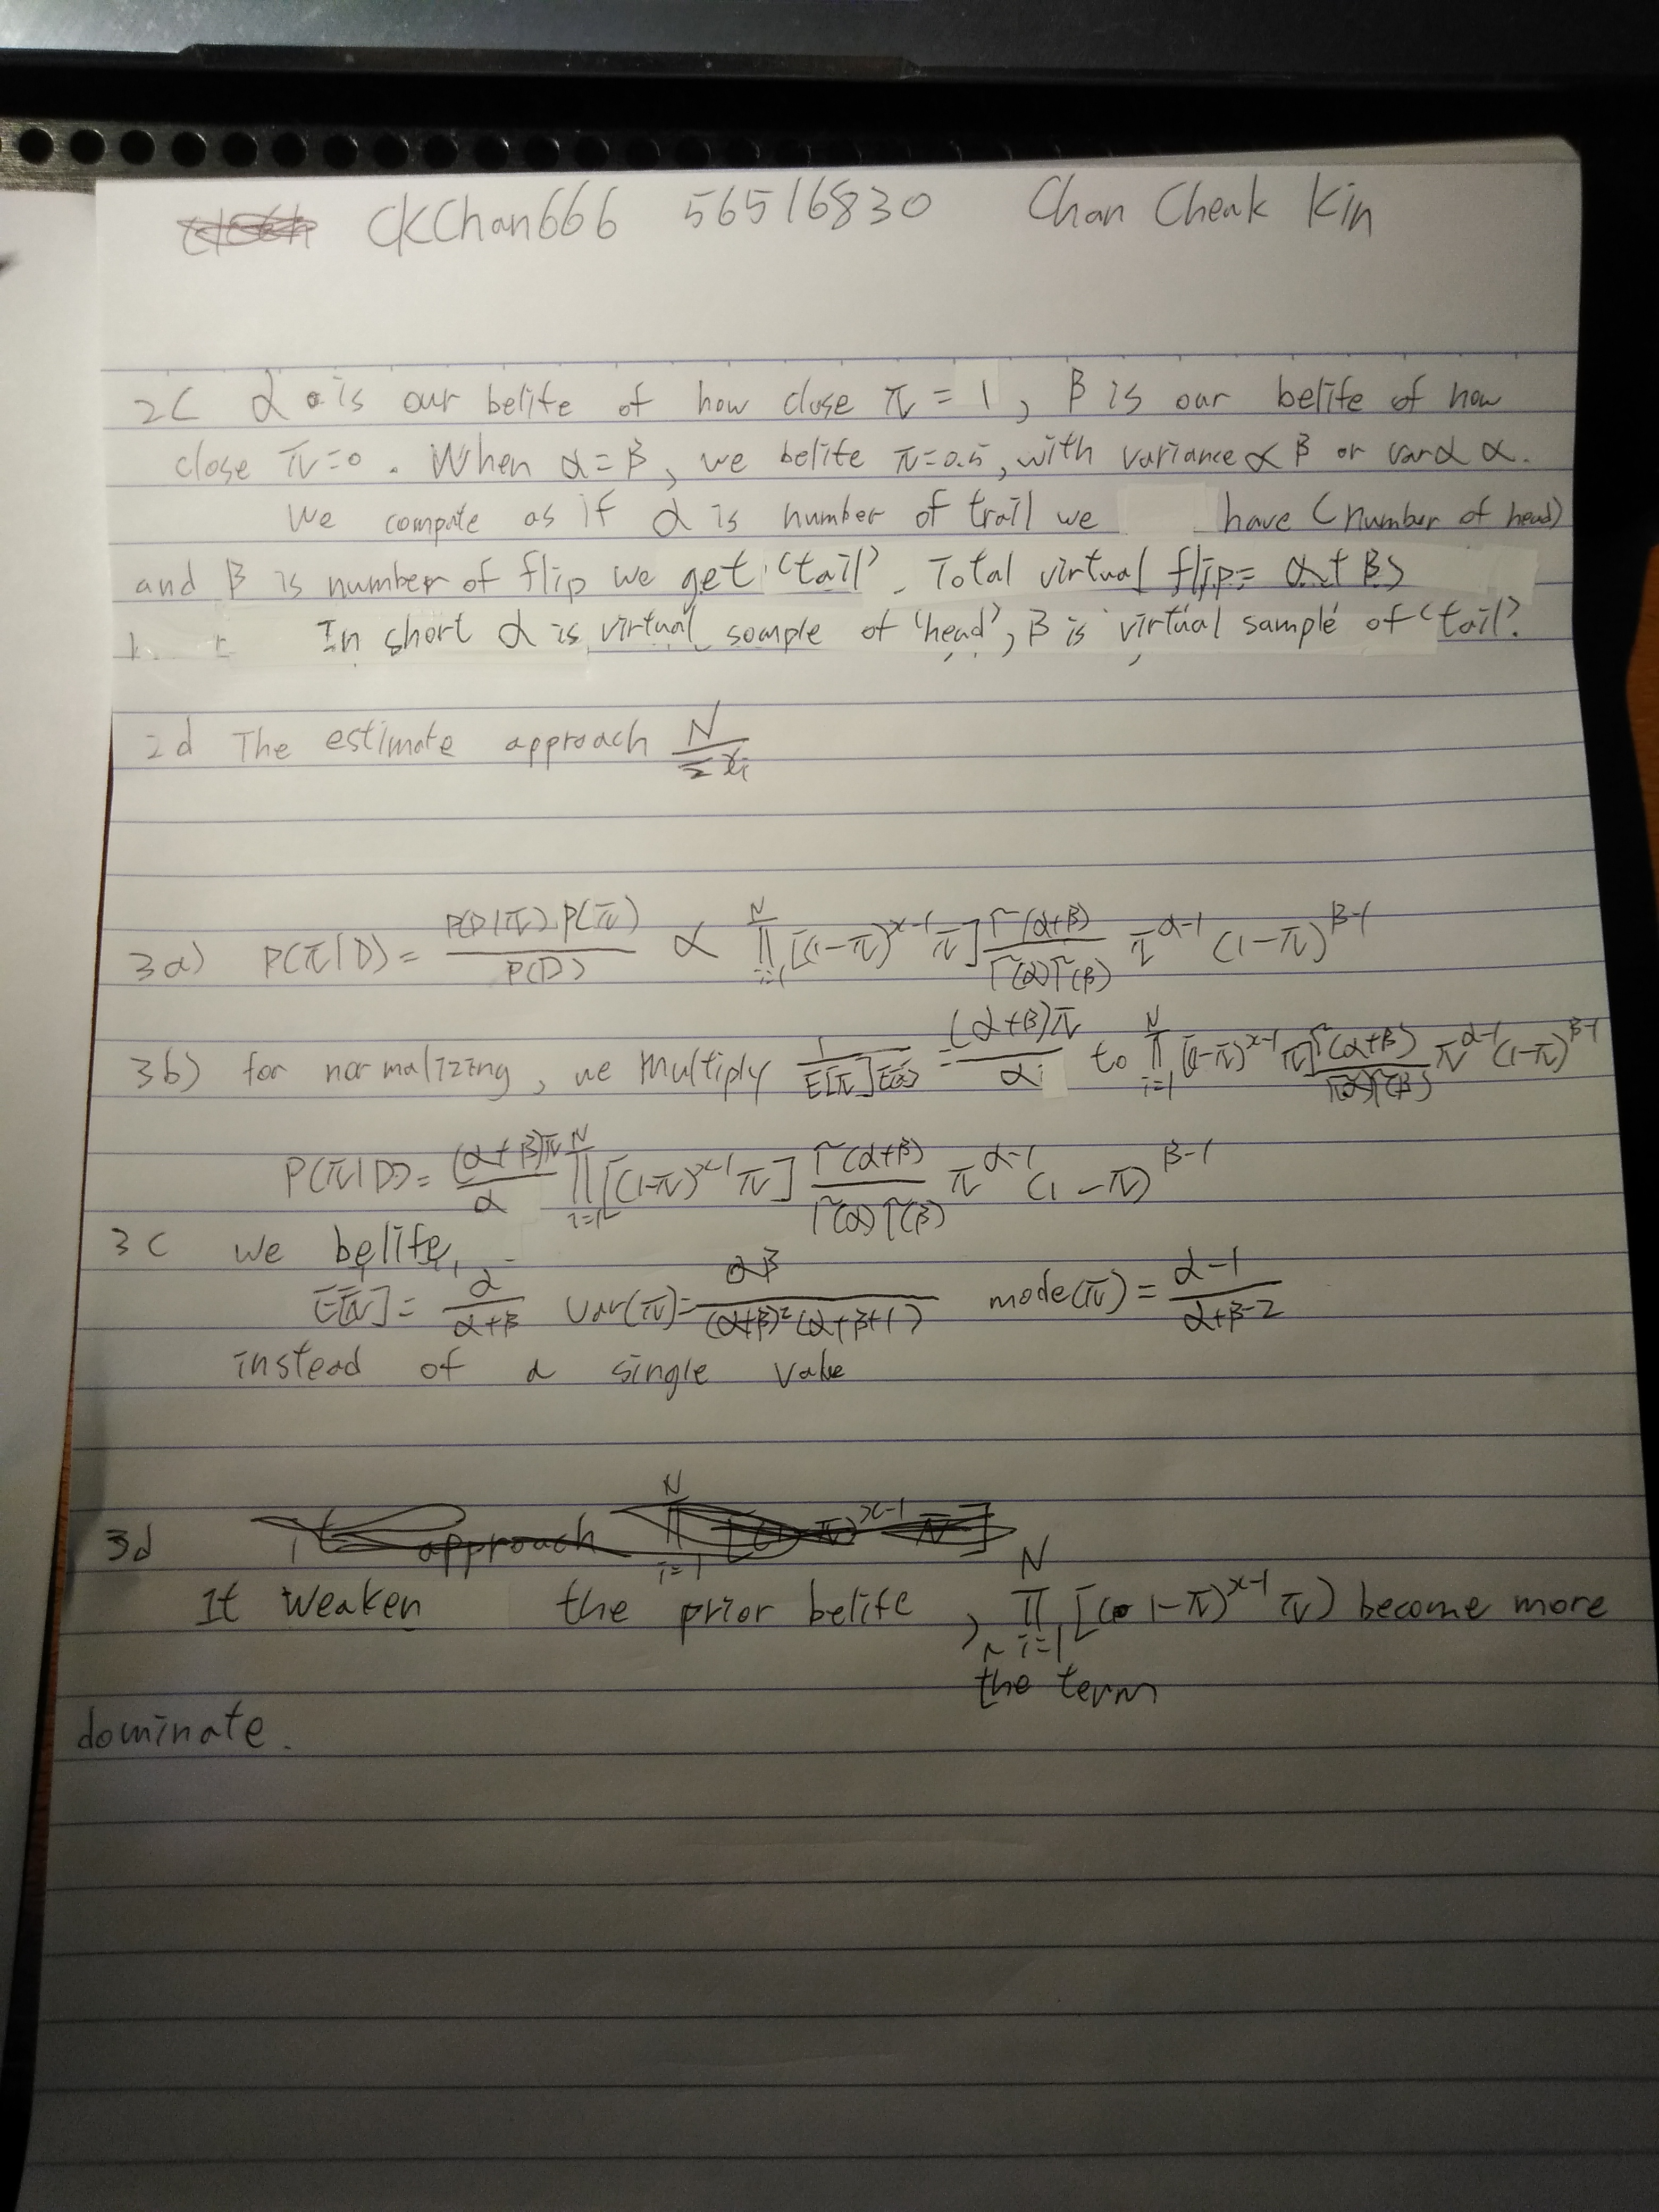 CKChan666 56516830 Chan Cheuk Kin
2C α is our belife of how close π = 1 , β is our belife of how
close π=0 . When α=β , we belife π=0.5, with variance ∝ β or var ∝ α.
We compute as if α is number of trail we have (number of head)
and β is number of flip we get 'tail' . Total virtual flip= α+β
In short α is virtual sample of 'head', β is virtual sample of 'tail'.
2d The estimate approach N/Σxi
3a) P(π|D) = P(D|π) P(π)/P(D) ∝ ∏_{i=1}^{N} [(1-π)^{x-1} π] Γ(α+β)/Γ(α)Γ(β) π^{α-1} (1-π)^{β-1}
3b) for normalizing , we multiply = (α+β)π/α to ∏_{i=1}^{N} [(1-π)^{x-1} π] Γ(α+β)/Γ(α)Γ(β) π^{α-1} (1-π)^{β-1}
P(π|D) = (α+β)π/α ∏_{i=1}^{N} [(1-π)^{x-1} π] Γ(α+β)/Γ(α)Γ(β) π^{α-1} (1-π)^{β-1}
3C we belife,
E[π] = α/α+β var(π) = αβ/(α+β)²(α+β+1) mode(π) = α-1/α+β-2
instead of a single value
3d it approach ∏_{i=1}^{N} [(1-π)^{x-1} π]
It weaken the prior belife , ∏_{i=1}^{N} [(1-π)^{x-1} π) become more
the term
dominate.